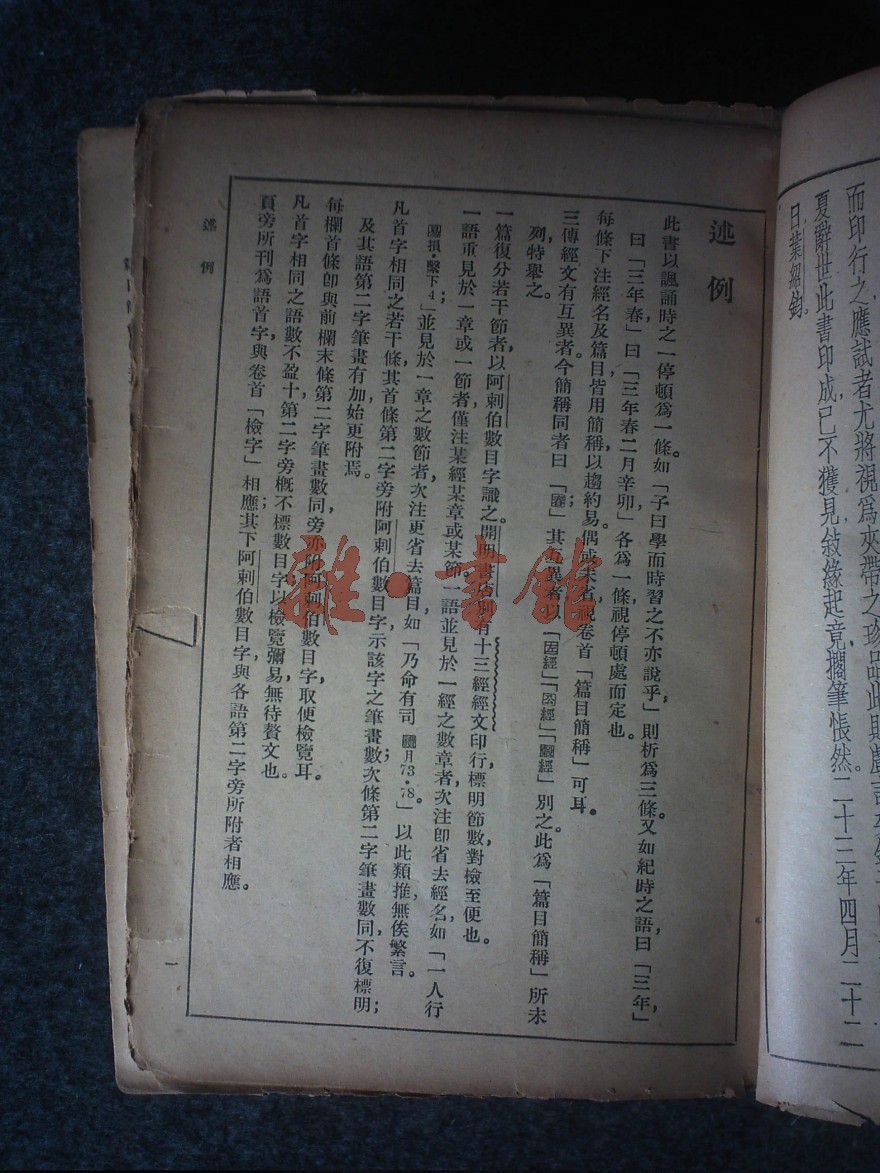 而印行之應試者尤將視爲夾帶之珍品此則
夏辭世此書印成已不獲見敍緣起竟擱筆悵然。二十三年四月二十二
日葉紹鈞。
述例
此書以諷誦時之一停頓爲一條。如「子曰學而時習之不亦說乎」則析爲三條。又如紀時之語，曰「三年」
曰「三年春」曰「三年春二月辛卯」各爲一條，視停頓處而定也。
每條下注經名及篇目，皆用簡稱，以趨約易；偶或未省，視卷首「篇目簡稱」可耳。
三傳經文有互異者，今簡稱同者曰「」其互異者以「經」「經」「經」別之。此爲「篇目簡稱」所未
列，特舉之。
一篇復分若干節者，以阿剌伯數目字識之。開明書店別有十三經經文印行，標明節數，對檢至便也。
一語重見於一章或一節者，僅注某經某章或某節。一語並見於一經之數章者，次注卽省去經名，如「一人行
損·繫下4」；並見於一章之數節者，次注更省去篇目，如「乃命有司 月73·78」。以此類推，無俟繁言。
凡首字相同之若干條，其首條第二字旁附阿剌伯數目字，示該字之筆畫數；次條第二字筆畫數同，不復標明；
及其語第二字筆畫有加，始更附焉。
每欄首條卽與前欄末條第二字筆畫數同，旁亦附阿剌伯數目字，取便檢覽耳。
凡首字相同之語數不盈十，第二字旁槪不標數目字，以檢覽彌易，無待贅文也。
頁旁所刊爲語首字，與卷首「檢字」相應；其下阿剌伯數目字，與各語第二字旁所附者相應。
述例
一
雜·書館